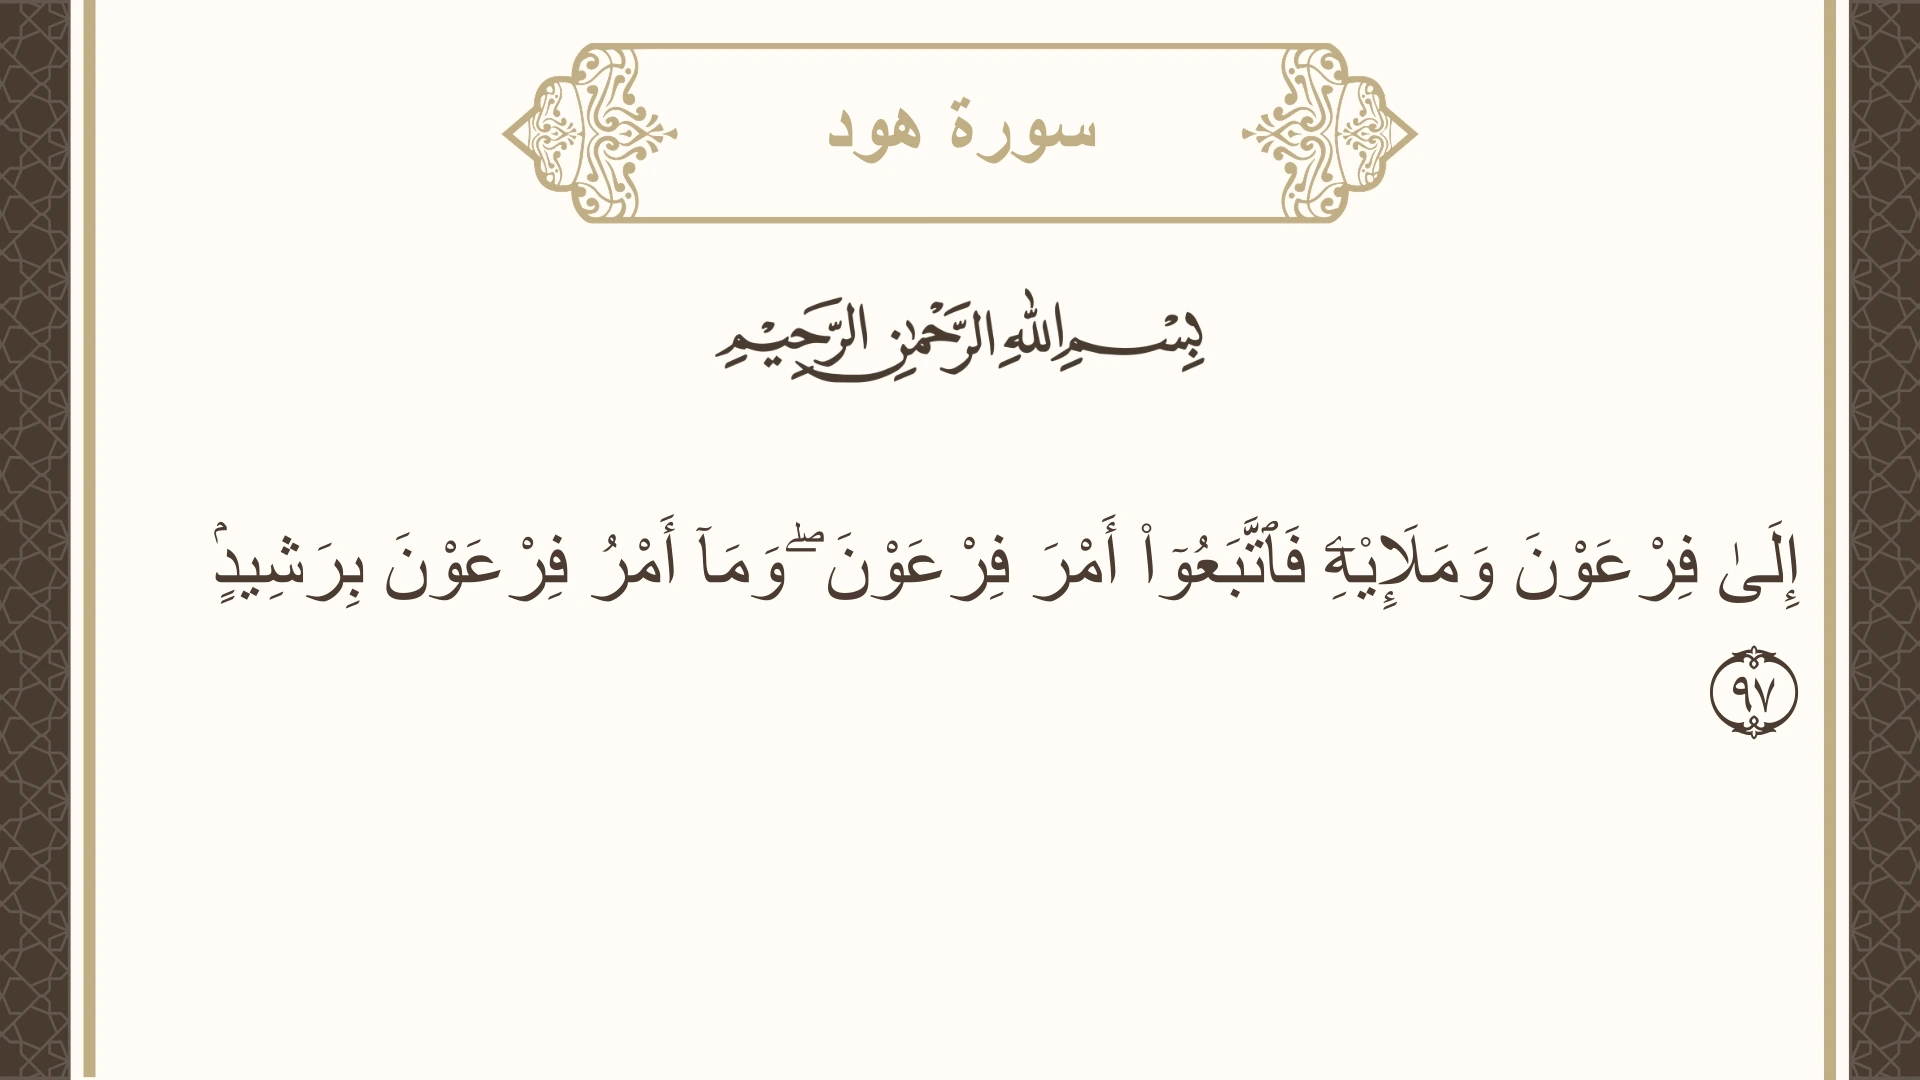 سورة هود
بِسْمِ اللهِ الرَّحْمٰنِ الرَّحِيْمِ
إِلَىٰ فِرْعَوْنَ وَمَلَإِي۟هِۦ فَٱتَّبَعُوٓا۟ أَمْرَ فِرْعَوْنَ ۖ وَمَآ أَمْرُ فِرْعَوْنَ بِرَشِيدٍۢ
٩٧